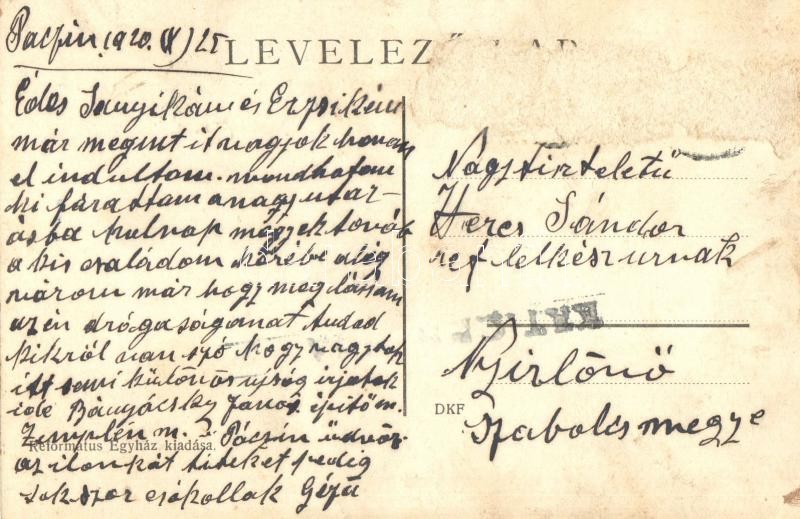 Paczin, 1920. IX) 25
LEVELEZŐ
Édes Sanyikám és Erzsikém
már megint it vagyok honan
el indultam. mondhatom
ki fárattam a nagy utaz-
ásba hulnap megyek továb
a kis családom körébe alig
várom már hogy meg lássam
az én drógaságanat tudod
kikről van szó hogy vagytok
itt semi külónös ujság irjatok
ide Bányácsky János épitőm.
Zemplén m. Páczin üdvöz.
az ilonkát titeket pedig
sokszor csókollak Géza
Református Egyház kiadása.
Nagytiszteletű
Hercs Sándor
ref lelkész urnak
DKF
Nyirlövő
Szabolcs megye